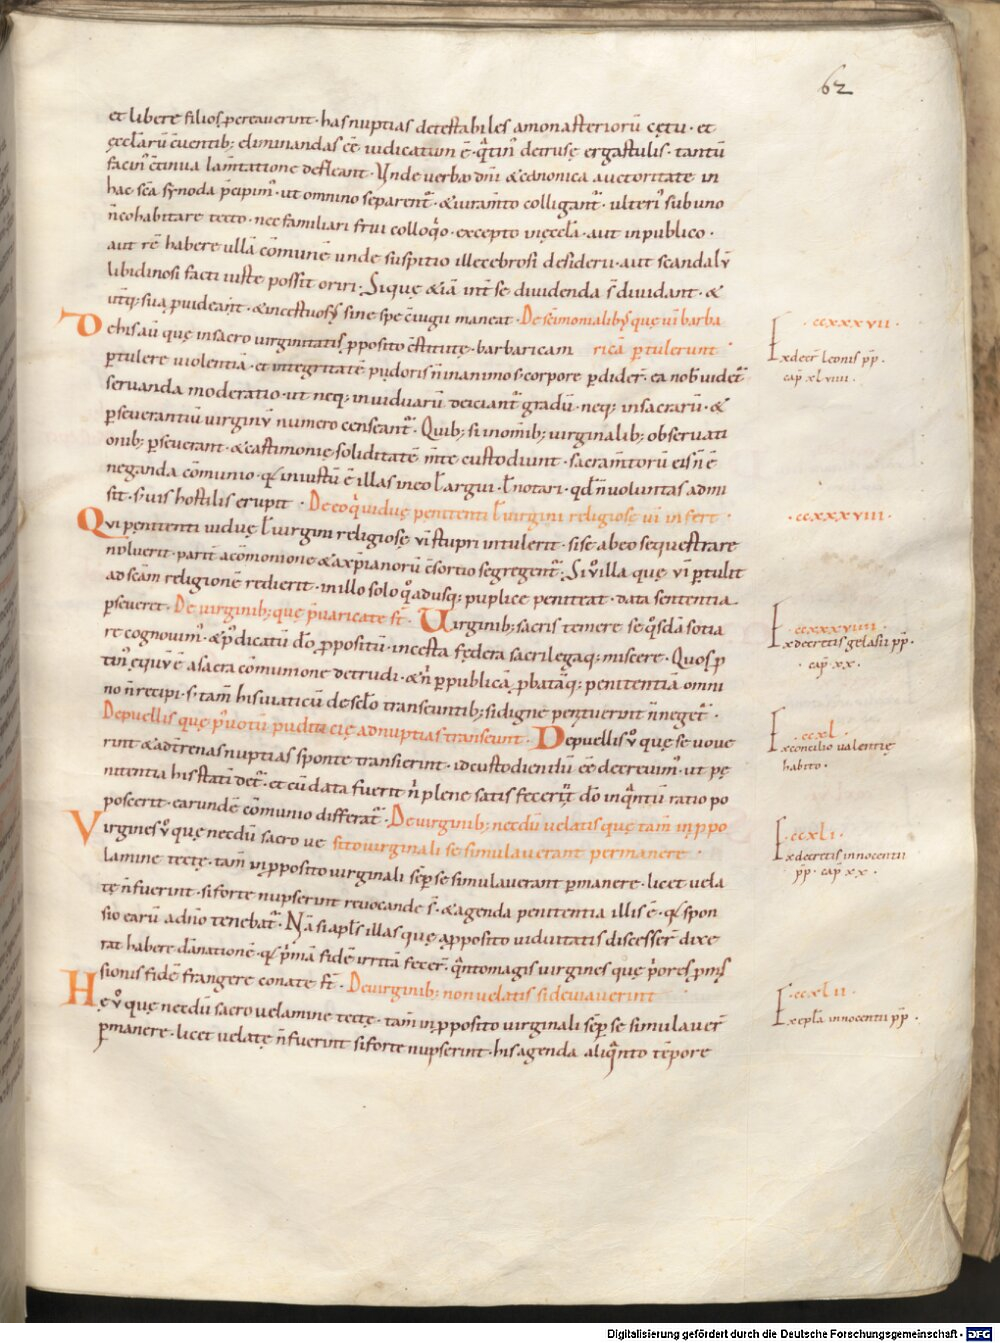 62
et libere filios pcreaverint · has nuptias detestabiles amonasteriorū cętu · et
ęcclarū ēventib; eliminandas eē iudicatum ē · q̄tin̄ detrusę ergastulis · tantū
facin̄ c̄tinua lam̄tatione defleant · Unde verbo dn̄i & canonica auctoritate in
hac sc̄a synoda p̄cipim̄ · ut omnino separent̄ · & iuram̄to colligant̄ · ulteri᷒ sub uno
n̄ cohabitare tecto · nec familiari frui colloq̊o · excepto in ęccl̄a · aut in publico ·
aut rē habere ullā cōmunē unde suspitio illecebrosi desiderii · aut scandalū
libidinosi facti iuste possit oriri · Siquę & iā int̄ se dividenda s̄ dividant · &
ut̄q; sua p̄uideant̄ · & incestuosus sine spe c̄iugii maneat · De sc̄imonialib; quę vī barba
De his aū quę insacro virginitatis pposito c̄stitutę · barbaricam ricā ptulerunt ·
ptulere violentiā · et integritatē pudoris n̄ in animo s; corpore pdider̄ · ea nob̄ videt̄
servanda moderatio · ut neq; in viduarū deiciant̄ gradū · neq; insacrarū · &
pseverantiū virginū numero censeant̄ · Quib; si inom̄ib; virginalib; observati
onib; pseverant · & castimonię soliditatē m̄te custodiunt · sacram̄torū eis n̄ ē
neganda cōmunio · q̄ iniustū ē illas in eo l̄ argui · l̄ notari · qd n̄ voluntas admi
sit · s; vis hostilis erupit · De eo q̊ viduę penitenti l̄ virgini religiosę vī infert ·
Qui pęnitenti viduę l̄ virgini religiosę vī stupri intulerit · si se ab eo sequestrare
noluerit · parit̄ a cōmonione & axp̄ianorū c̄sortio segregent̄ · Si v̊ illa quę vī ptulit
ad sc̄am religionē redierit · in illo solo q̊adusq; puplice peniteat · data sententia
pseveret · De virginib; quę p̄varicatę st̄ · Virginib; sacris temere se q̊sdā socia
re cognovim᷒ · & p᷒ dicatū dō ppositū · incesta fędera sacrilegaq; miscere · Quos p
tin᷒ ęquū ē a sacra cōmunione detrudi · & n̄ p publicā pbatāq; penitentiā omni
no n̄ recipi · s; tam̄ his viaticū de sclo transeuntib; si digne penituerint n̄ neget̄ ·
De puellis quę p᷒ votū pudicicię ad nuptias transeunt · De puellis v̊ quę se vove
rint & ad t̄renas nuptias sponte transierint · id custodiendū eē decrevim᷒ · ut pę
nitentia his stati det̄ · et cū data fuerit n̄ plene satis fecerīt dō inq̄ntū ratio po
poscerit · earundē cōmunio differat̄ · De virginib; necdū velatis quę tam̄ in ppo
Virgines v̊ quę necdū sacro ve sito virginali se simulaverant permanere ·
lamine tectę · tam̄ in pposito virginali sēp se simulaverant pmanere · licet vela
tę n̄ fuerint · si forte nupserint revocandę s̄ · & agenda penitentia illis ē · q̄ spon
sio earū a dn̄o tenebat̄ · Nā si apls illas quę a pposito viduitatis discesser̄ dixe
rat habere dānationē · q̄ p᷒mā fidē irritā fecer̄ · q̄nto magis virgines quę p᷒ores pmis
sionis fidē frangere conate st̄ · De virginib; non velatis si deviaverint
Hę v̊ quę necdū sacro velamine tectę · tam̄ in pposito virginali sēp se simulaver̄
pmanere · licet velatę n̄ fuerint si forte nupserint · his agenda aliq̄nto tēpore
· ccxxxvii ·
Ex decr̄ leonis pp ·
cap̄ xlviiii ·
· ccxxxviii ·
· ccxxxviiii ·
Ex decretis gelasii pp ·
· cap̄ xx ·
· ccxl ·
Ex concilio valentię
habito ·
· ccxli ·
Ex decretis innocentii
pp · cap̄ xx ·
· ccxlii ·
Ex epla innocentii pp ·
Digitalisierung gefördert durch die Deutsche Forschungsgemeinschaft - DFG